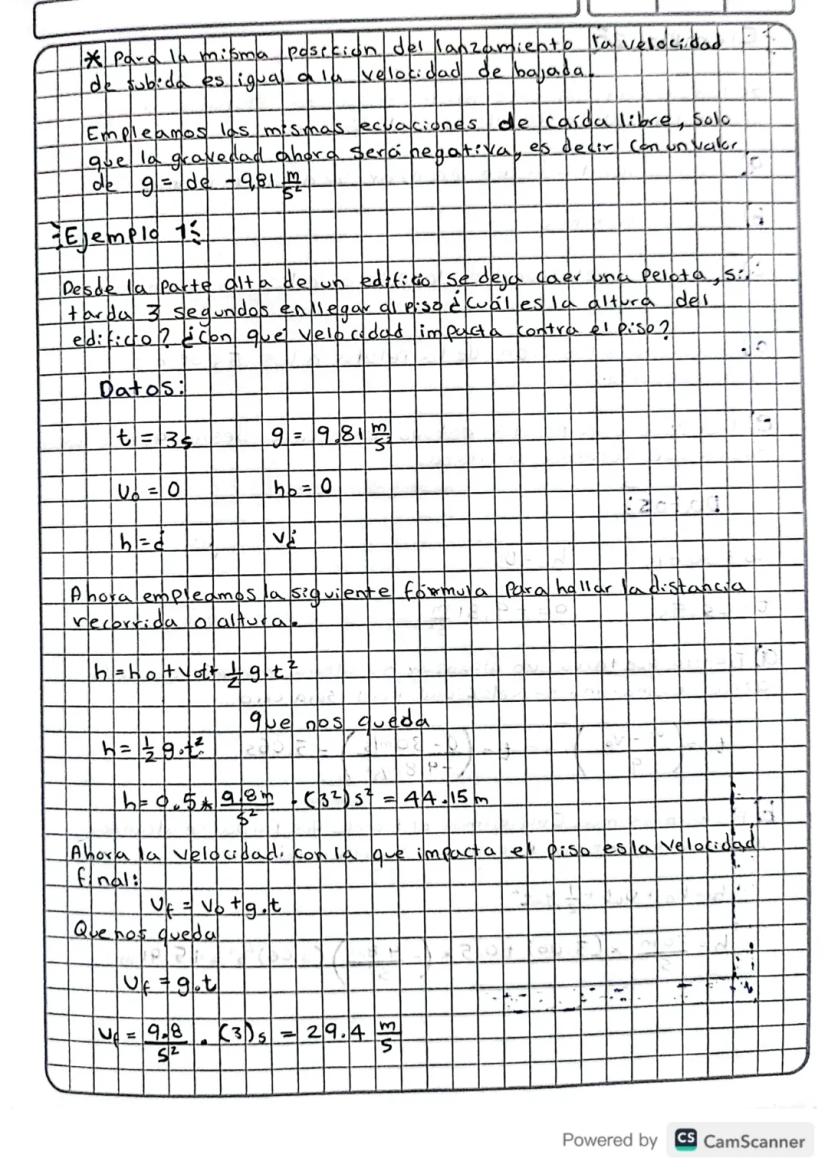 * Para la misma posición del lanzamiento la velocidad
de subida es igual a la velocidad de bajada.
Empleamos las mismas ecuaciones de caída libre, solo
que la gravedad ahora será negativa, es decir con un valor
de g = de -9,81 m/s²
Ejemplo 1:
Desde la parte alta de un edificio se deja caer una pelota, si
tarda 3 segundos en llegar al piso ¿cuál es la altura del
edificio? ¿con que velocidad impacta contra el piso?
Datos:
t = 3s g = 9.81 m/s²
v₀ = 0 h₀ = 0
h = ¿ v¿
Ahora empleamos la siguiente fórmula para hallar la distancia
recorrida o altura.
h = h₀ + v₀t + 1/2 g.t²
que nos queda
h = 1/2 g.t²
h = 0.5 * 9.8m/s² . (3²)s² = 44.15m
Ahora la velocidad con la que impacta el piso es la velocidad
final:
vf = v₀ + g.t
Que nos queda
vf = g.t
vf = 9.8/s² . (3)s = 29.4 m/s
Powered by CS CamScanner